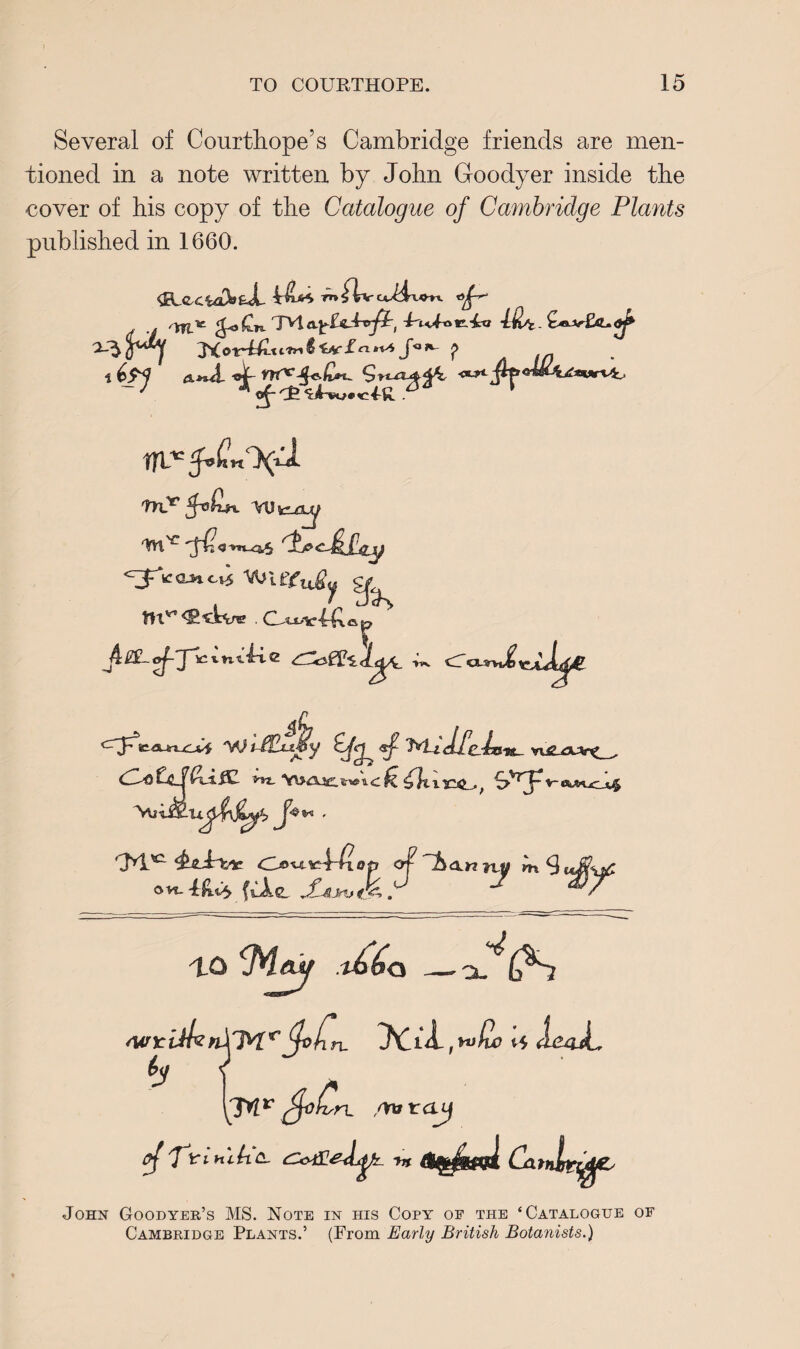 TO COURTHOPE. 15
Several of Courthope's Cambridge friends are men-
tioned in a note written by John Goodyer inside the
cover of his copy of the Catalogue of Cambridge Plants
published in 1660.
of
Mr John Mapletoft, tutor to the
23 July Northumb
1659 and of Mr John
of Petworth.
Mr John Nid
Mr John Wray
Mr Thomas Lockley
Francis Willughby Esq
Mr Peter Courthop
All of Trinitie Colledge in Cambridge
Francis Willughby Esq of Midleton neare
in Warwick Shire, Sr Francis
Willughbyes son.
Mr Peter Courthop of Danny in
on this side Lewes.
10 May 1660
written by Mr John Nid, who is dead
Mr John Wray
of Trinitie Colledge in Cambridge
JOHN GOODYER'S MS. NOTE IN HIS COPY OF THE 'CATALOGUE OF
CAMBRIDGE PLANTS.' (From Early British Botanists.)